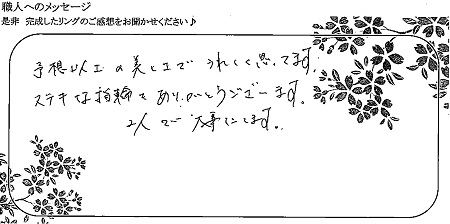 職人へのメッセージ
是非 完成したリングのご感想をお聞かせください♪
予想以上の美しさで うれしく思ってます。
ステキな指輪を ありがとうございます。
2人で大事にします。